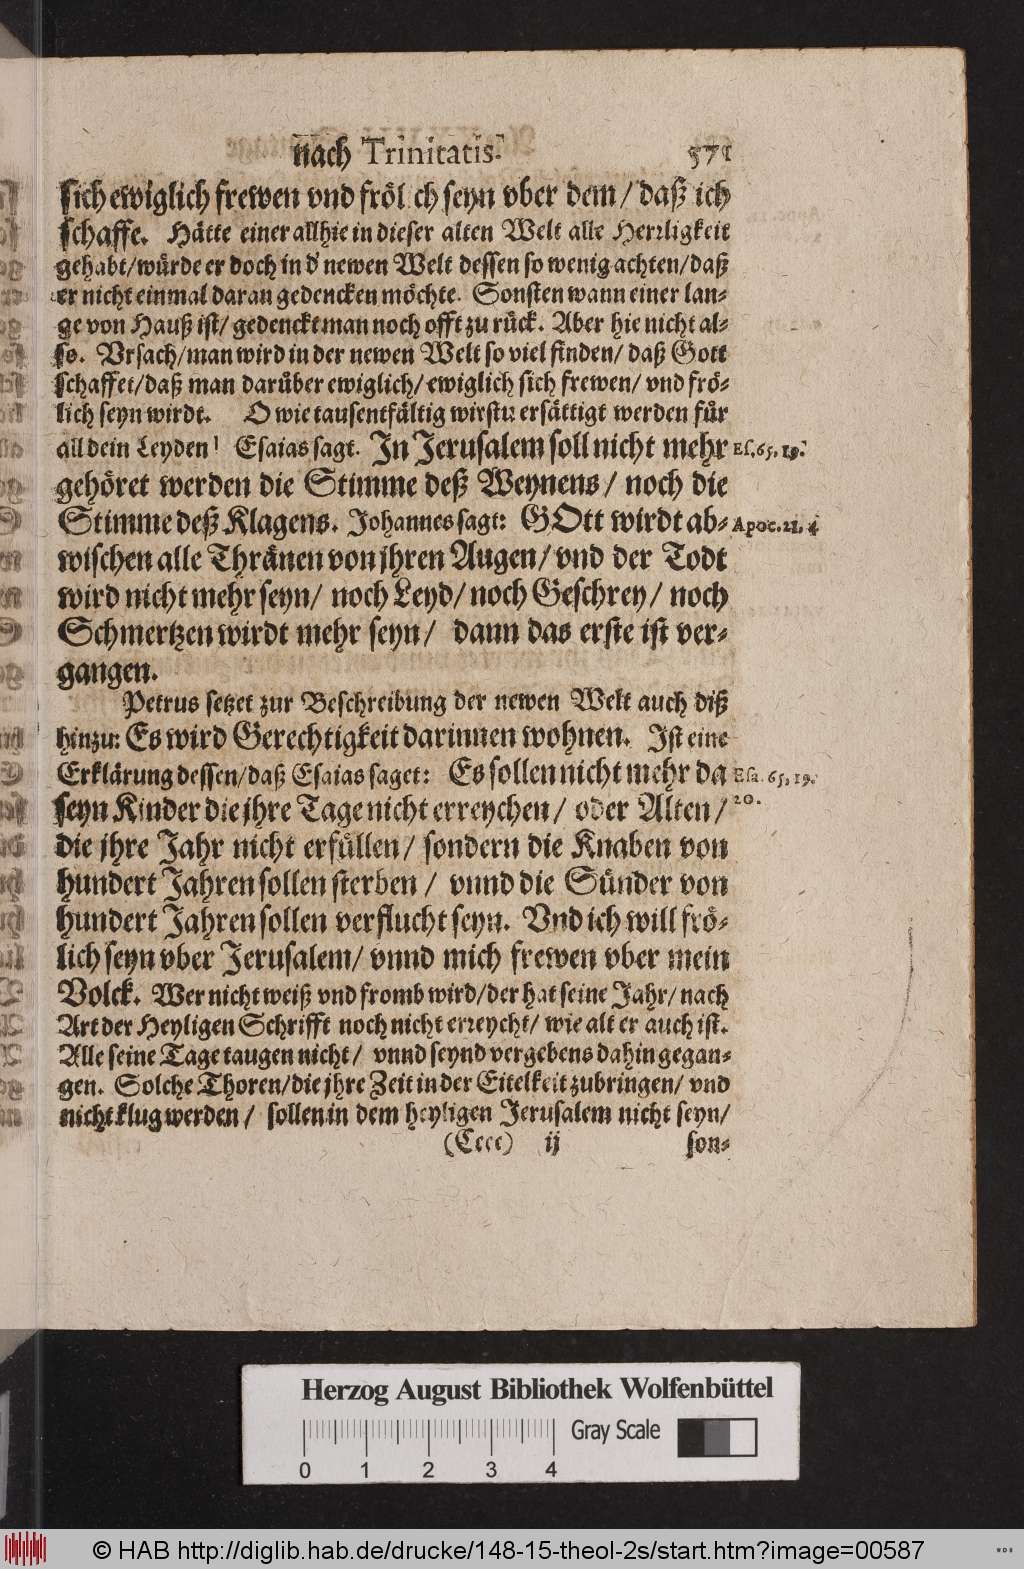 nach Trinitatis. 571
sich ewiglich frewen vnd frölich seyn vber dem / daß ich
schaffe. Hätte einer allhie in dieser alten Welt alle Herrligkeit
gehabt/ würde er doch in d' newen Welt dessen so wenig achten/ daß
er nicht einmal daran gedencken möchte. Sonsten wann einer lan⸗
ge von Hauß ist/ gedenckt man noch offt zu rück. Aber hie nicht al⸗
so. Vrsach/ man wird in der newen Welt so viel finden/ daß Gott
schaffet/ daß man darüber ewiglich/ ewiglich sich frewen/ vnd frö⸗
lich seyn wirdt. O wie tausentfältig wirstu ersättigt werden für
all dein Leyden! Esaias sagt. In Jerusalem soll nicht mehr Es. 65. 19.
gehöret werden die Stimme deß Weynens/ noch die
Stimme deß Klagens. Johannes sagt: GOtt wirdt ab⸗ Apoc. 21. 4
wischen alle Thränen von jhren Augen/ vnd der Todt
wird nicht mehr seyn/ noch Leyd/ noch Geschrey/ noch
Schmertzen wirdt mehr seyn/ dann das erste ist ver⸗
gangen.
Petrus setzet zur Beschreibung der newen Welt auch diß
hinzu: Es wird Gerechtigkeit darinnen wohnen. Ist eine
Erklärung dessen/ daß Esaias saget: Es sollen nicht mehr da Esa. 65. 19.
seyn Kinder die jhre Tage nicht erreychen/ oder Alten/ 20.
die jhre Jahr nicht erfüllen/ sondern die Knaben von
hundert Jahren sollen sterben / vnnd die Sünder von
hundert Jahren sollen verflucht seyn. Vnd ich will frö⸗
lich seyn vber Jerusalem/ vnnd mich frewen vber mein
Volck. Wer nicht weiß vnd fromb wird/ der hat seine Jahr/ nach
Art der Heyligen Schrifft noch nicht erreycht/ wie alt er auch ist.
Alle seine Tage taugen nicht/ vnnd seynd vergebens dahin gegan⸗
gen. Solche Thoren/ die jhre Zeit in der Eitelkeit zubringen/ vnd
nicht klug werden/ sollen in dem heyligen Jerusalem nicht seyn/
(Cccc) ij son⸗
Herzog August Bibliothek Wolfenbüttel
Gray Scale
0 1 2 3 4
© HAB http://diglib.hab.de/drucke/148-15-theol-2s/start.htm?image=00587